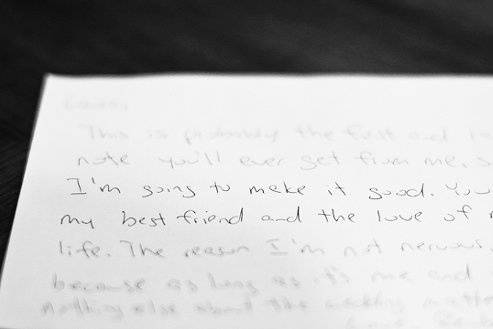 This is probably the first and
note you'll ever get from me, s
I'm going to make it good. You
my best friend and the love of m
life. The reason I'm not nervous
because as long as it's me and
nothing else about the wedding matte